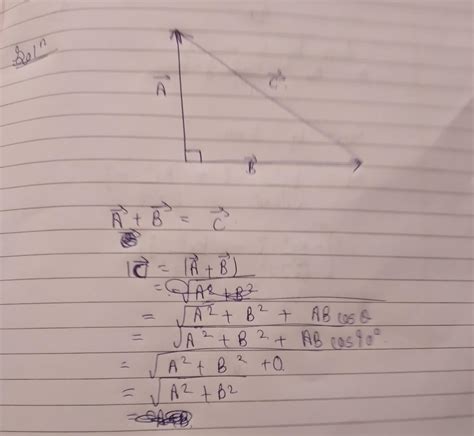 Solⁿ
A⃗
C⃗
B⃗
A⃗ + B⃗ = C⃗
|C⃗| = |A⃗ + B⃗|
= √A² + B²
= √A² + B² + AB cos θ
= √A² + B² + AB cos 90°
= √A² + B² + 0
= √A² + B²
=